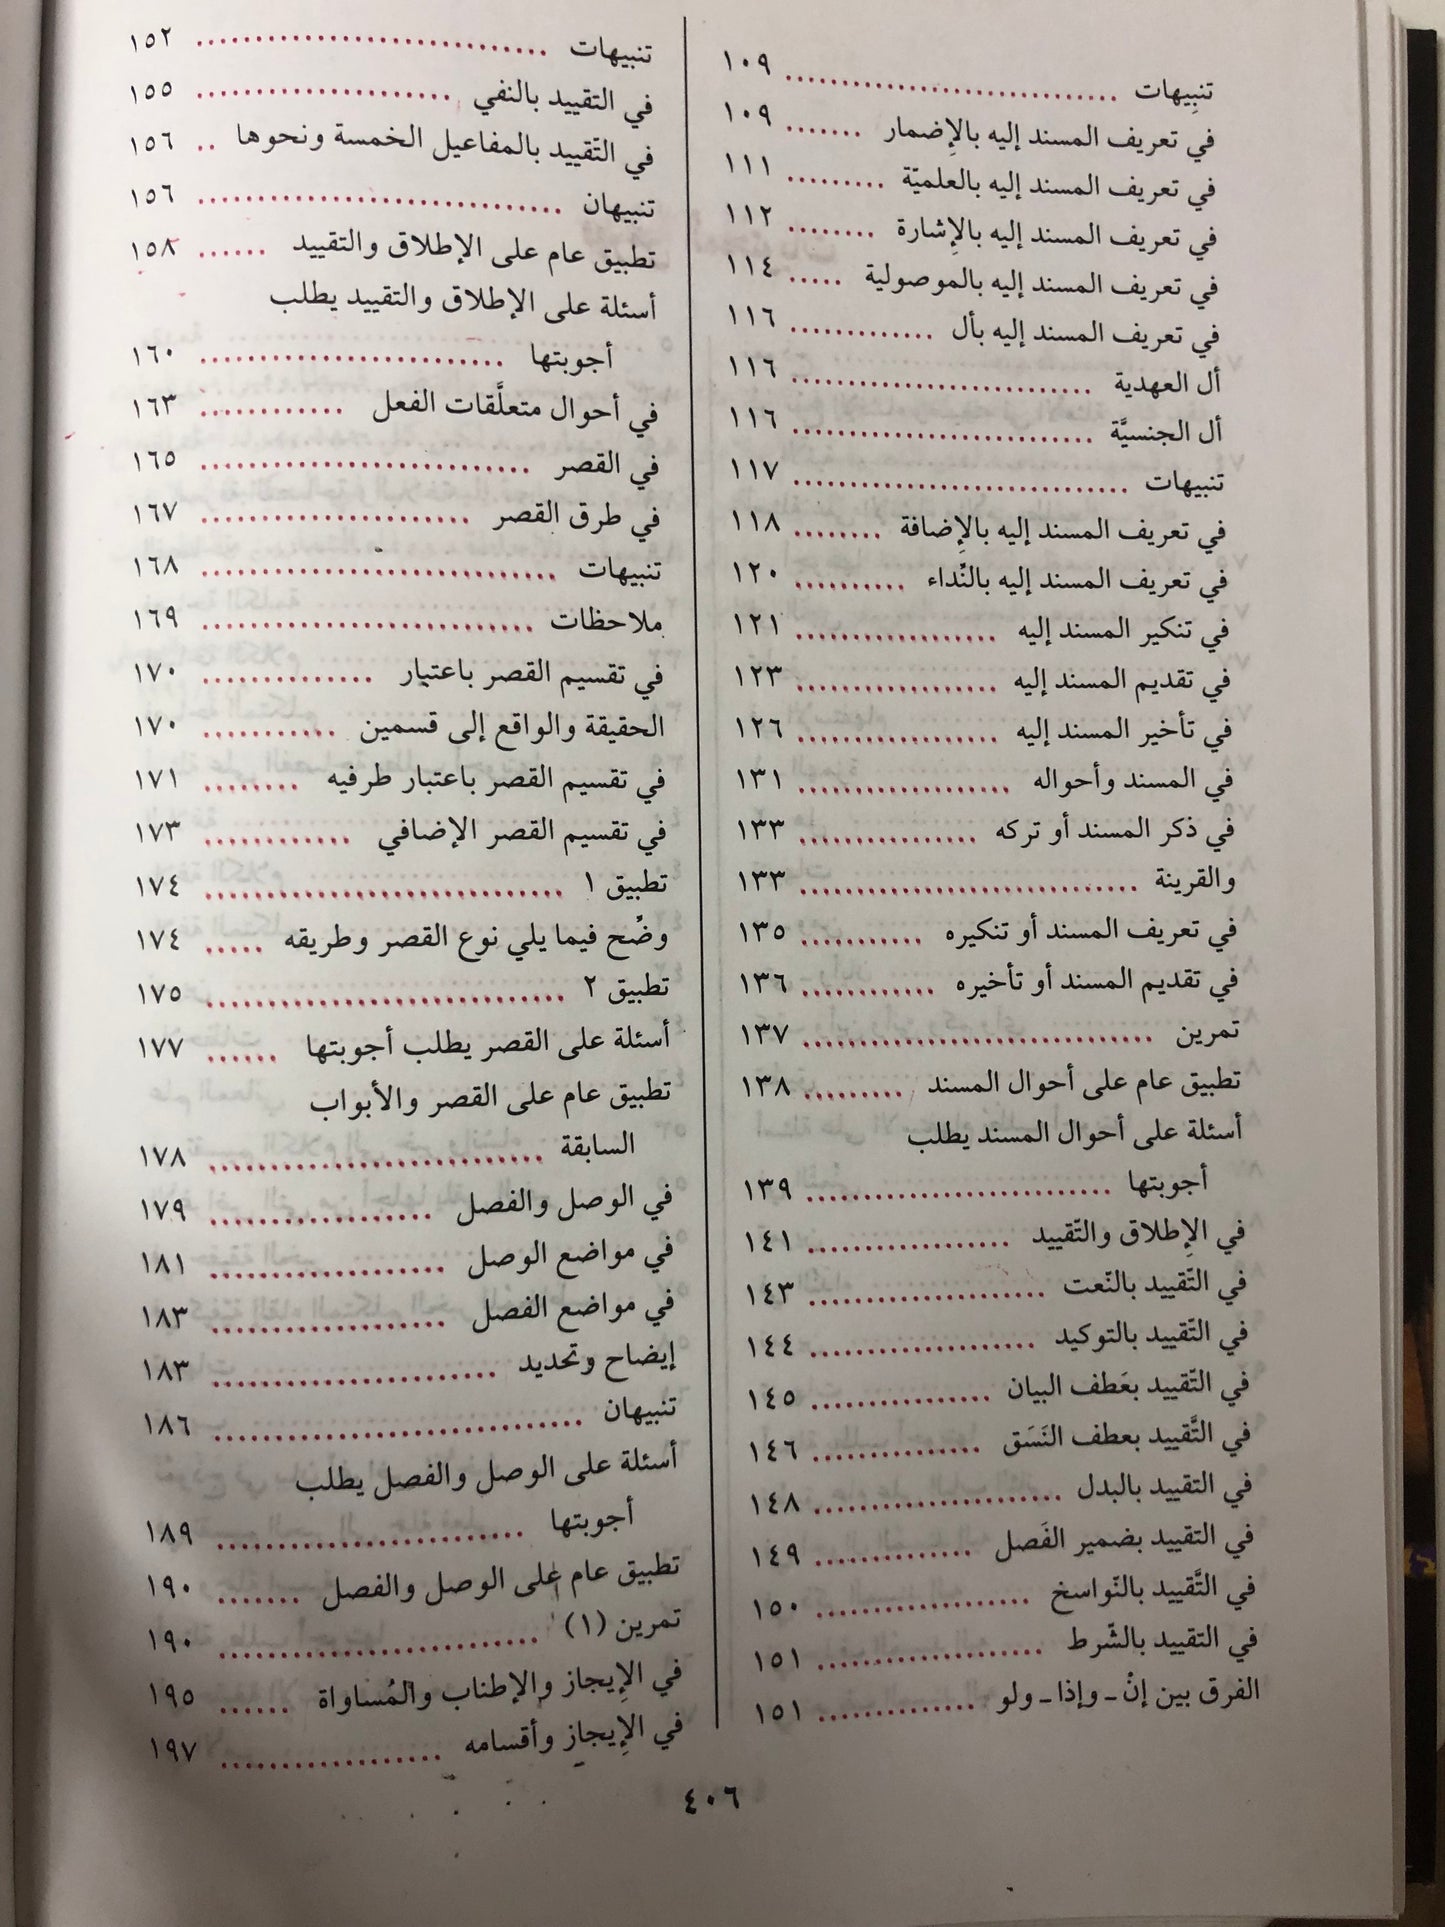 تنبيهات ١٠٩
في تعريف المسند إليه بالإضمار ١٠٩
في تعريف المسند إليه بالعلميّة ١١١
في تعريف المسند إليه بالإشارة ١١٢
في تعريف المسند إليه بالموصولية ١١٤
في تعريف المسند إليه بأل ١١٦
أل العهدية ١١٦
أل الجنسيَّة ١١٦
تنبيهات ١١٧
في تعريف المسند إليه بالإضافة ١١٨
في تعريف المسند إليه بالنِّداء ١٢٠
في تنكير المسند إليه ١٢١
في تقديم المسند إليه ١٢٣
في تأخير المسند إليه ١٢٦
في المسند وأحواله ١٣١
في ذكر المسند أو تركه ١٣٣
والقرينة ١٣٣
في تعريف المسند أو تنكيره ١٣٥
في تقديم المسند أو تأخيره ١٣٦
تمرين ١٣٧
تطبيق عام على أحوال المسند ١٣٨
أسئلة على أحوال المسند يطلب
أجوبتها ١٣٩
في الإِطلاق والتّقييد ١٤١
في التّقييد بالنّعت ١٤٣
في التّقييد بالتوكيد ١٤٤
في التّقييد بعَطف البيان ١٤٥
في التَّقييد بعطف النَسَق ١٤٦
في التقييد بالبدل ١٤٨
في التقييد بضمير الفَصل ١٤٩
في التَّقييد بالنّواسخ ١٥٠
في التقييد بالشّرط ١٥١
الفرق بين إنْ ـ وإذا ـ ولو ١٥١
تنبيهات ١٥٢
في التقييد بالنفي ١٥٥
في التّقييد بالمفاعيل الخمسة ونحوها ١٥٦
تنبيهان ١٥٦
تطبيق عام على الإطلاق والتقييد ١٥٨
أسئلة على الإطلاق والتقييد يطلب
أجوبتها ١٦٠
في أحوال متعلَّقات الفعل ١٦٣
في القصر ١٦٥
في طرق القصر ١٦٧
تنبيهات ١٦٨
ملاحظات ١٦٩
في تقسيم القصر باعتبار ١٧٠
الحقيقة والواقع إلى قسمين ١٧٠
في تقسيم القصر باعتبار طرفيه ١٧١
في تقسيم القصر الإضافي ١٧٣
تطبيق ١ ١٧٤
وضِّح فيما يلي نوع القصر وطريقه ١٧٤
تطبيق ٢ ١٧٥
أسئلة على القصر يطلب أجوبتها ١٧٧
تطبيق عام على القصر والأبواب
السابقة ١٧٨
في الوصل والفصل ١٧٩
في مواضع الوصل ١٨١
في مواضع الفصل ١٨٣
إيضاح وتحديد ١٨٣
تنبيهان ١٨٦
أسئلة على الوصل والفصل يطلب
أجوبتها ١٨٩
تطبيق عام على الوصل والفصل ١٩٠
تمرين (١) ١٩٠
في الإِيجاز والإطناب والمُساواة ١٩٥
في الإِيجاز وأقسامه ١٩٧
٤٠٦